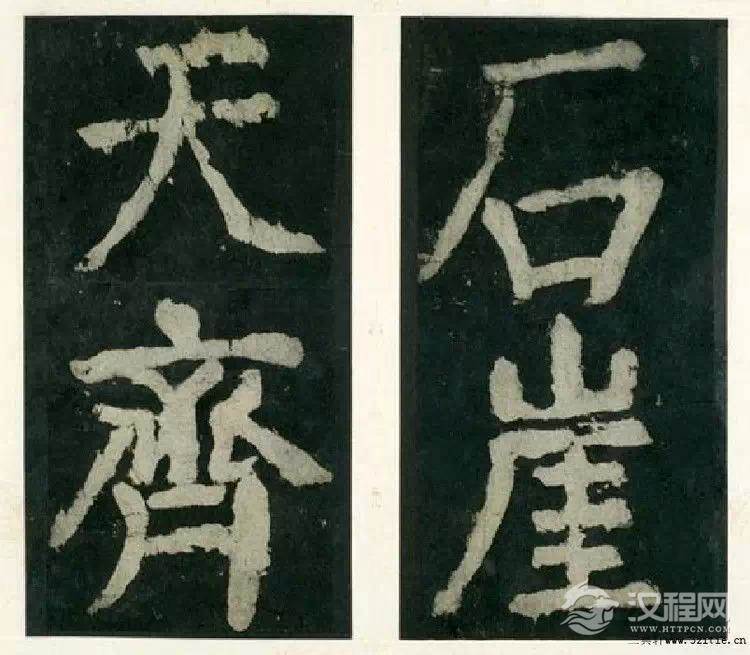 石崖
天齊
汉程网
WWW.HTTPCN.COM
www.521tie.cn